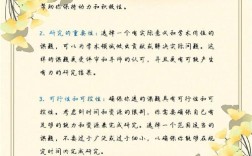 帮助你保持动力和积极性。
2. 研究的重要性：选择一个有实际意义和学术价值的
课题，可以为学术领域或社会贡献解决实际问题。这
样的课题更受评审和导师的认可，并且更有可能产生
有力的研究结果。
3. 可行性和可控性：确保你选的课题具有可行性和可控
性。考虑到时间和资源的限制，你需要确保自己有
足够的能力和资源来完成研究。选择一个范围适当的
课题，不要过于广泛或过于细小，以确保你能够在规
定时间内完成研究。